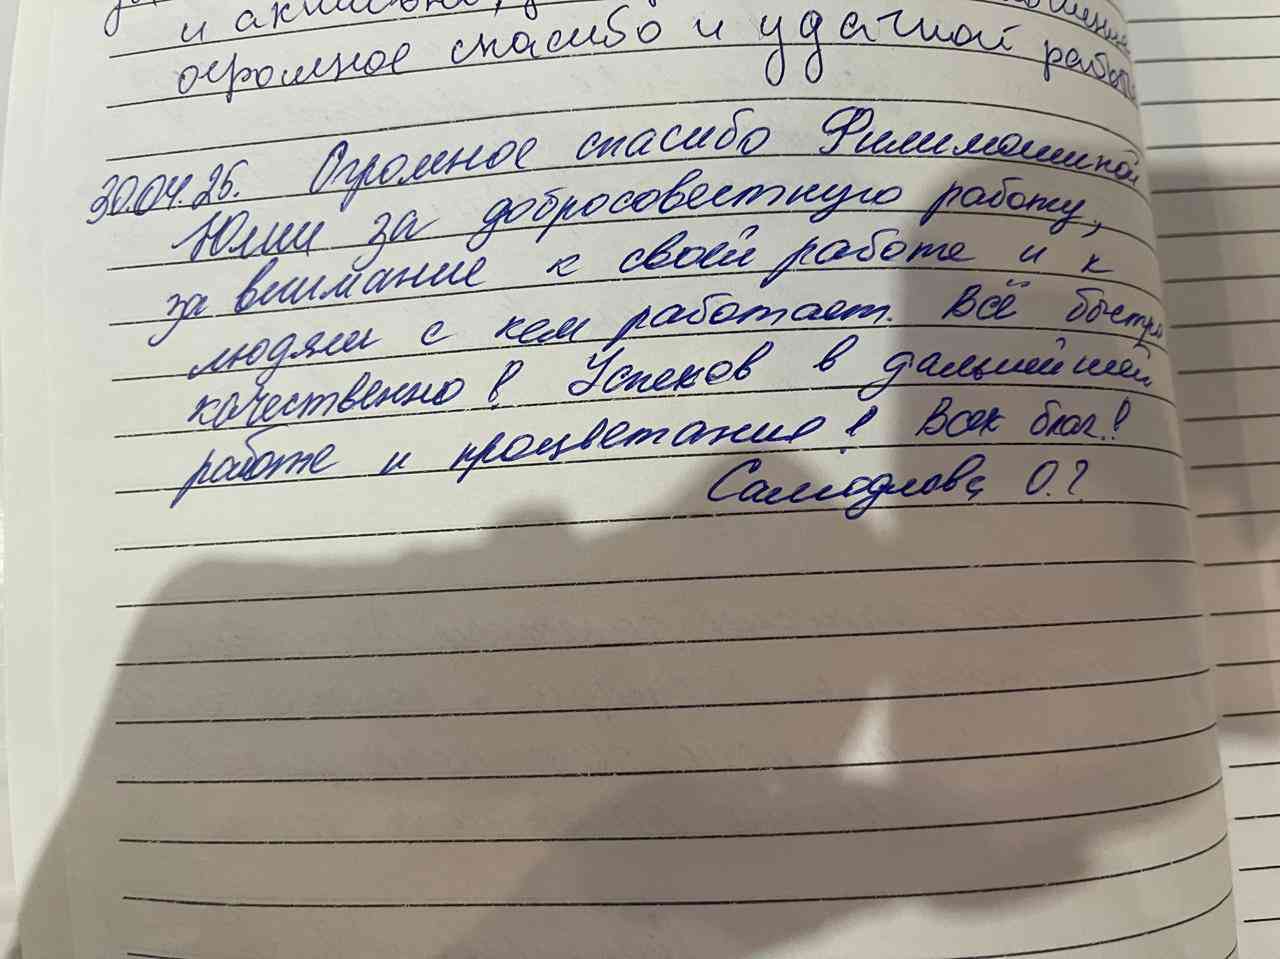 и
огромное спасибо и удачной работы
30.04.25. Огромное спасибо Филимошиной
Юлии за добросовестную работу,
за внимание к своей работе и к
людям с кем работает. Всё быстро
качественно! Успехов в дальнейшей
работе и процветания! Всех благ!
О.